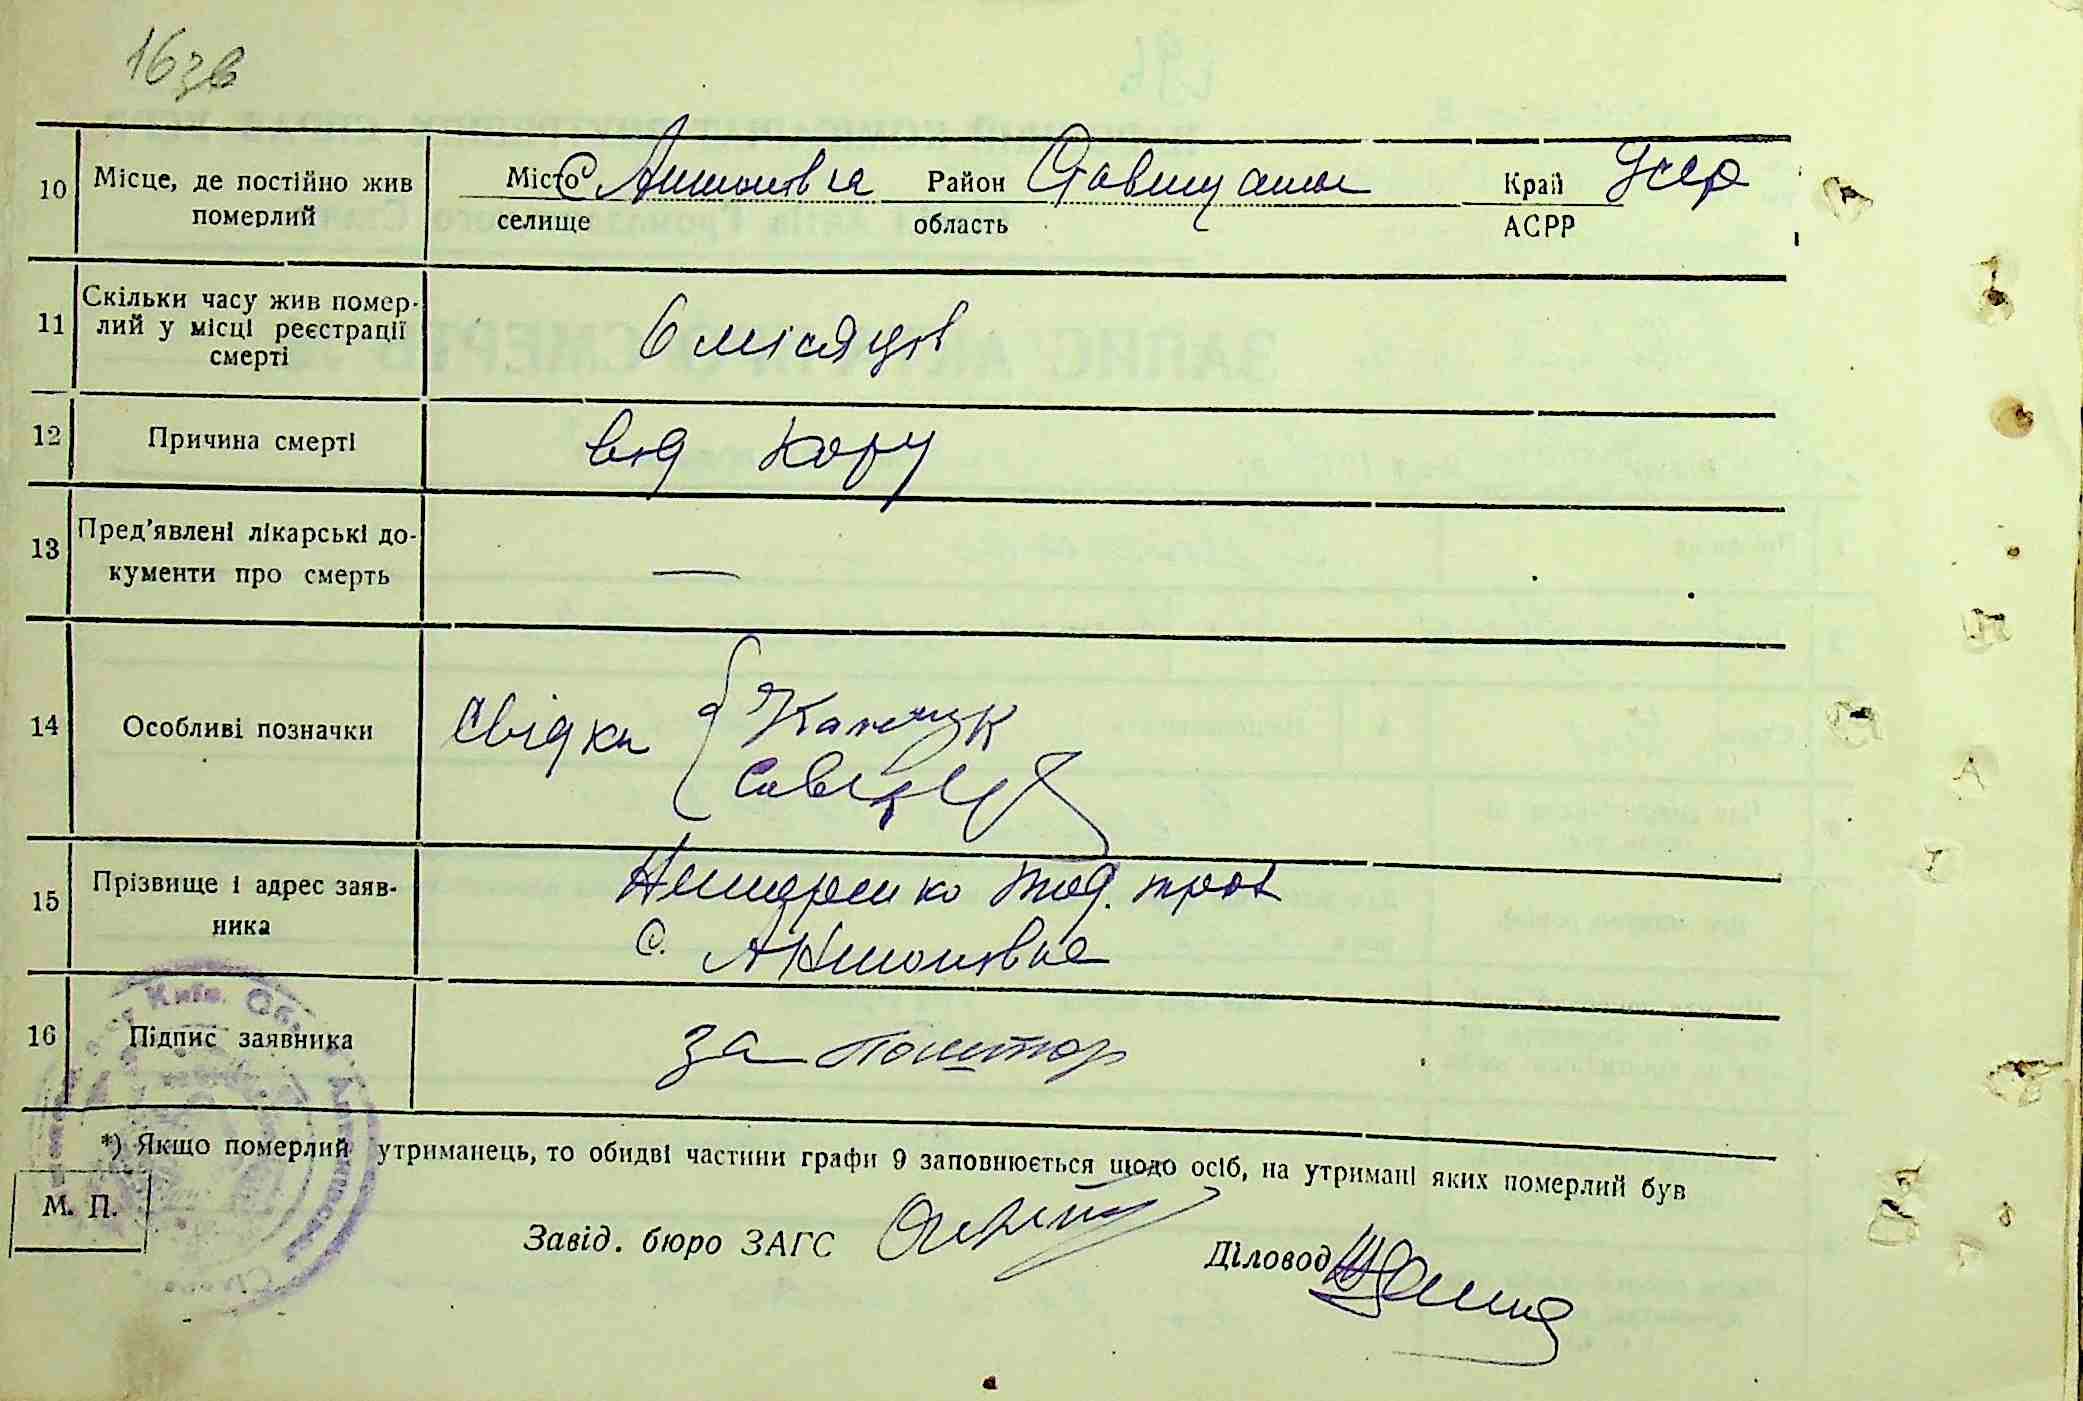 16зв
10 Місце, де постійно жив померлий Місто с Антонівка Район Ставищанск Край Усср
селище область АСРР
11 Скільки часу жив помер-
лий у місці реєстрації
смерті 6 місяців
12 Причина смерті від кору
13 Пред'явлені лікарські до-
кументи про смерть —
14 Особливі позначки Свідки
15 Прізвище і адрес заяв-
ника
с. Антонівка
16 Підпис заявника за
*) Якщо померлий утриманець, то обидві частини графи 9 заповнюється щодо осіб, на утримані яких померлий був
М. П.
Завід. бюро ЗАГС Діловод